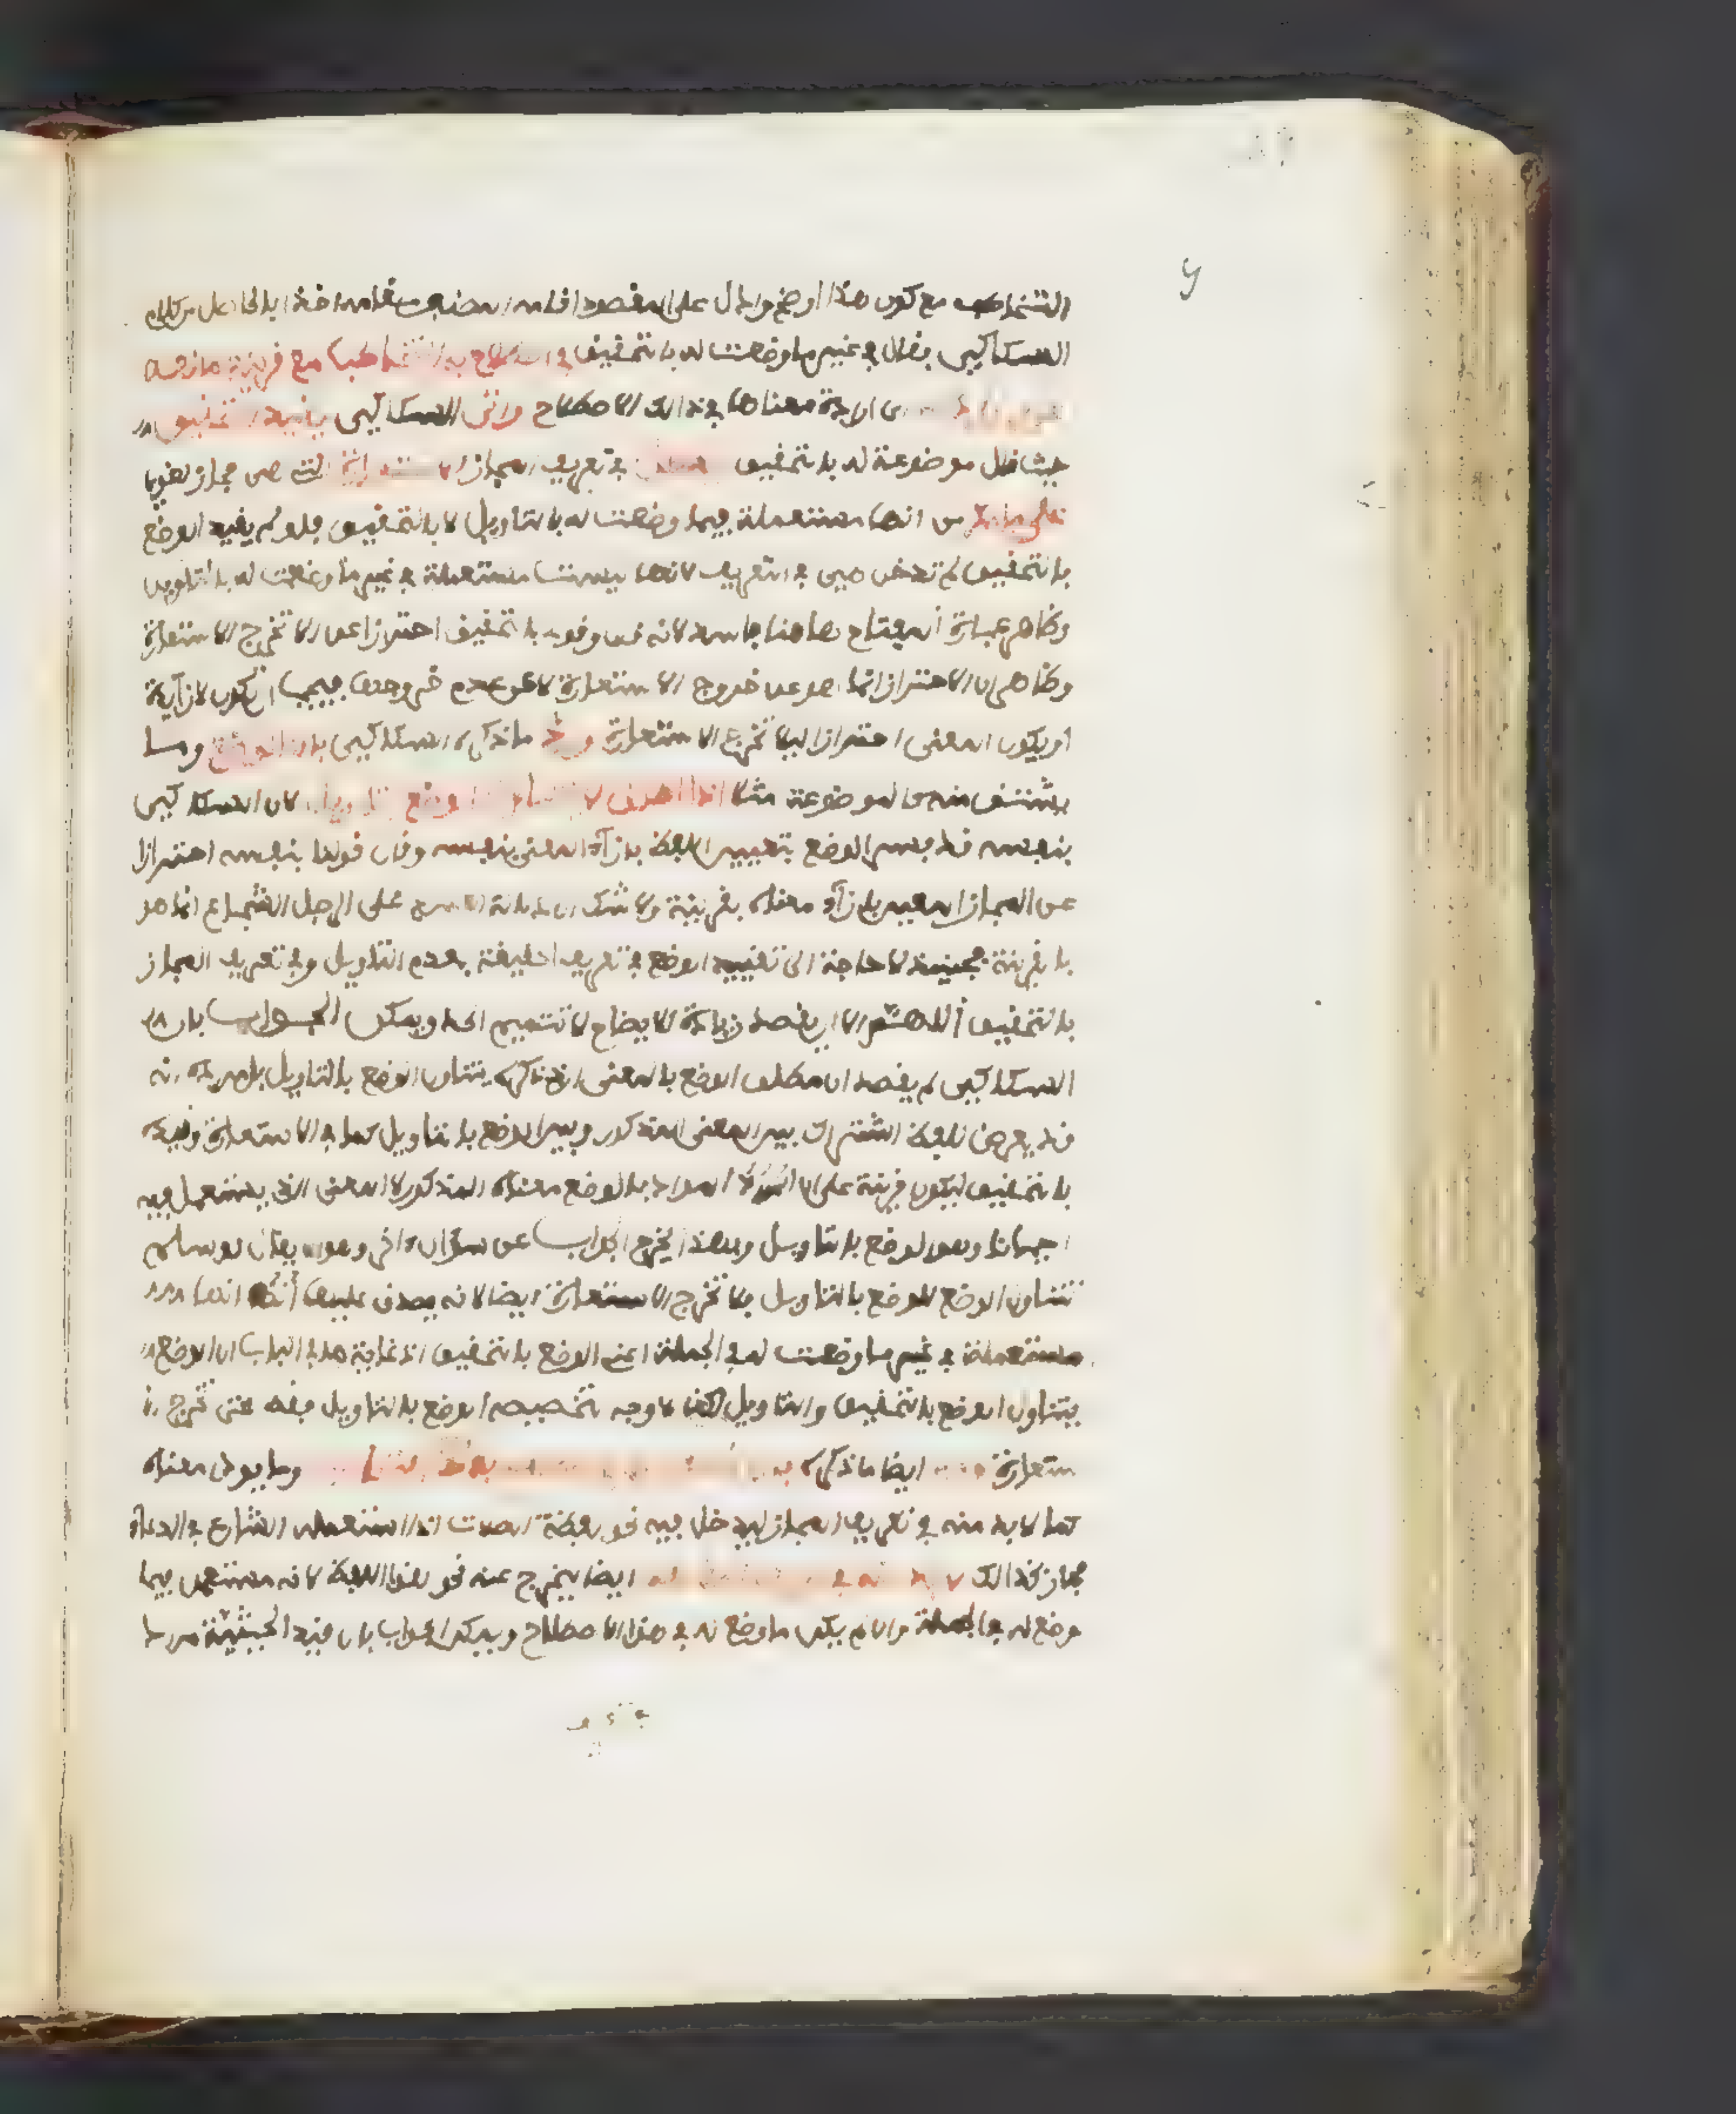 التخاطب مع كون هذا اوضح وادل على المقصود اقامه المصنف مقامه اخذا بالحاصل من كلام
السكاكي فقال في غير ما وضعت له بالتحقيق في اصطلاح به التخاطب مع قرينة مانعة
ارادة معناها في ذالك الاصطلاح واتى السكاكي بقيد التحقيق
حيث قال موضوعة له بالتحقيق في تعريف المجاز الاستعارة التي هي مجاز لغوي
على ما مر من انها مستعملة فيما وضعت له بالتاويل لا بالتحقيق فلو لم يقيد الوضع
بالتحقيق لم تدخل هي في التعريف لانها ليست مستعملة في غير ما وضعت له بالتاويل
وظاهر عبارة المفتاح هاهنا فاسد لانه قال وقوله بالتحقيق احترازا عن الا تخرج الاستعارة
وظاهر ان الاحتراز انما هو عن خروج الاستعارة لا عن عدم خروجها فيجب ان تكون لا زايدة
او يكون المعنى احترازا ليلا تخرج الاستعارة ورد ما ذكره السكاكي بان الوضع وما
يشتق منه كالموضوعة مثلا اذا اطلق لا يتناول الوضع بتاويل لان السكاكي
بنفسه قد فسر الوضع بتعيين اللفظ بازآء المعنى بنفسه وقال قولنا بنفسه احترازا
عن المجاز المعين بازآء معناه بقرينة ولا شك ان دلالة الاسد على الرجل الشجاع انما هو
بالقرينة فحينئذ لا حاجة الى تقييد الوضع في تعريف الحقيقة بعدم التاويل وفي تعريف المجاز
بالتحقيق اللهم الا ان يقصد زيادة الايضاح لا تتميم الحد ويمكن الجواب بان
السكاكي لم يقصد ان مطلق الوضع بالمعنى الذي ذكره يتناول الوضع بالتاويل بل مراده انه
قد يعرض للفظ اشتراك بين المعنى المذكور وبين الوضع بالتاويل كما في الاستعارة وقيده
بالتحقيق ليكون قرينة على ان المراد بالوضع معناه المذكور لا المعنى الذي يستعمل فيه
احيانا وهو الوضع بالتاويل وبهذا يخرج الجواب عن سؤال اخر وهو ان يقال لو سلم
تناول الوضع للوضع بالتاويل فلا تخرج الاستعارة ايضا لانه يصدق عليها انها
مستعملة في غير ما وضعت له في الجملة اعني الوضع بالتحقيق اذ غاية ما في الباب ان الوضع
يتناول الوضع بالتحقيق والتاويل لكن لا وجه لتخصيصه الوضع بالتاويل فقط حتى تخرج الا
ستعارة ايضا ما ذكره وما يودي معناه
كما لا بد منه في تعريف المجاز ليدخل فيه نحو لفظة الصلات اذا استعمله الشارع في الدعاء
مجاز كذالك لا بد ايضا ليخرج عنه نحو هذا اللفظ لانه مستعمل فيما
وضع له في الجملة وان لم يكن ما وضع له في هذا الاصطلاح ويمكن الجواب بان قيد الحيثية مراد